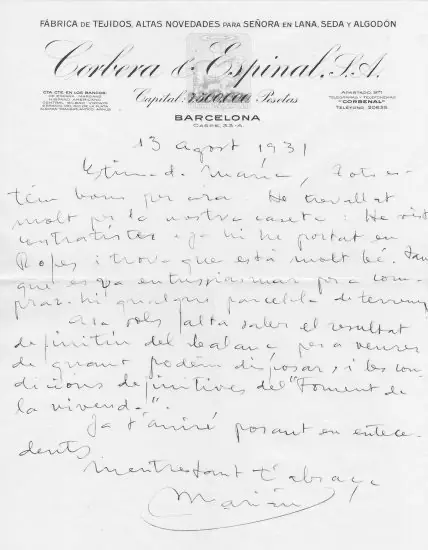 FÁBRICA DE TEJIDOS, ALTAS NOVEDADES PARA SEÑORA EN LANA, SEDA Y ALGODÓN
Corbera & Espinal, S.A.
CTA. CTE. EN LOS BANCOS:
Capital: 2.500.000 Pesetas
APARTADO, 971
TELEGRAMAS Y TELEFONEMAS
"CORBENAL"
TELÉFONO, 20635
BARCELONA
CASPE, 33-A.
13 agost 1931
Estimada Maria, Tots es-
tém bons per ara. He travellat
molt per la nostra caseta. He vist
contratistes e ja hi he portat en
i trova que está molt bé.
que es va entussiasmar per a com-
prar-hi qualque parcel·la de terreny
Ara sols falta saber el resultat
definitiu del balanç per a veurer
de quant podém disposar, i les con-
dicions definitives del "Foment de
la vivenda".
Ja t'aniré posant en antece-
dents
Mentrestant t'abraça
Marian